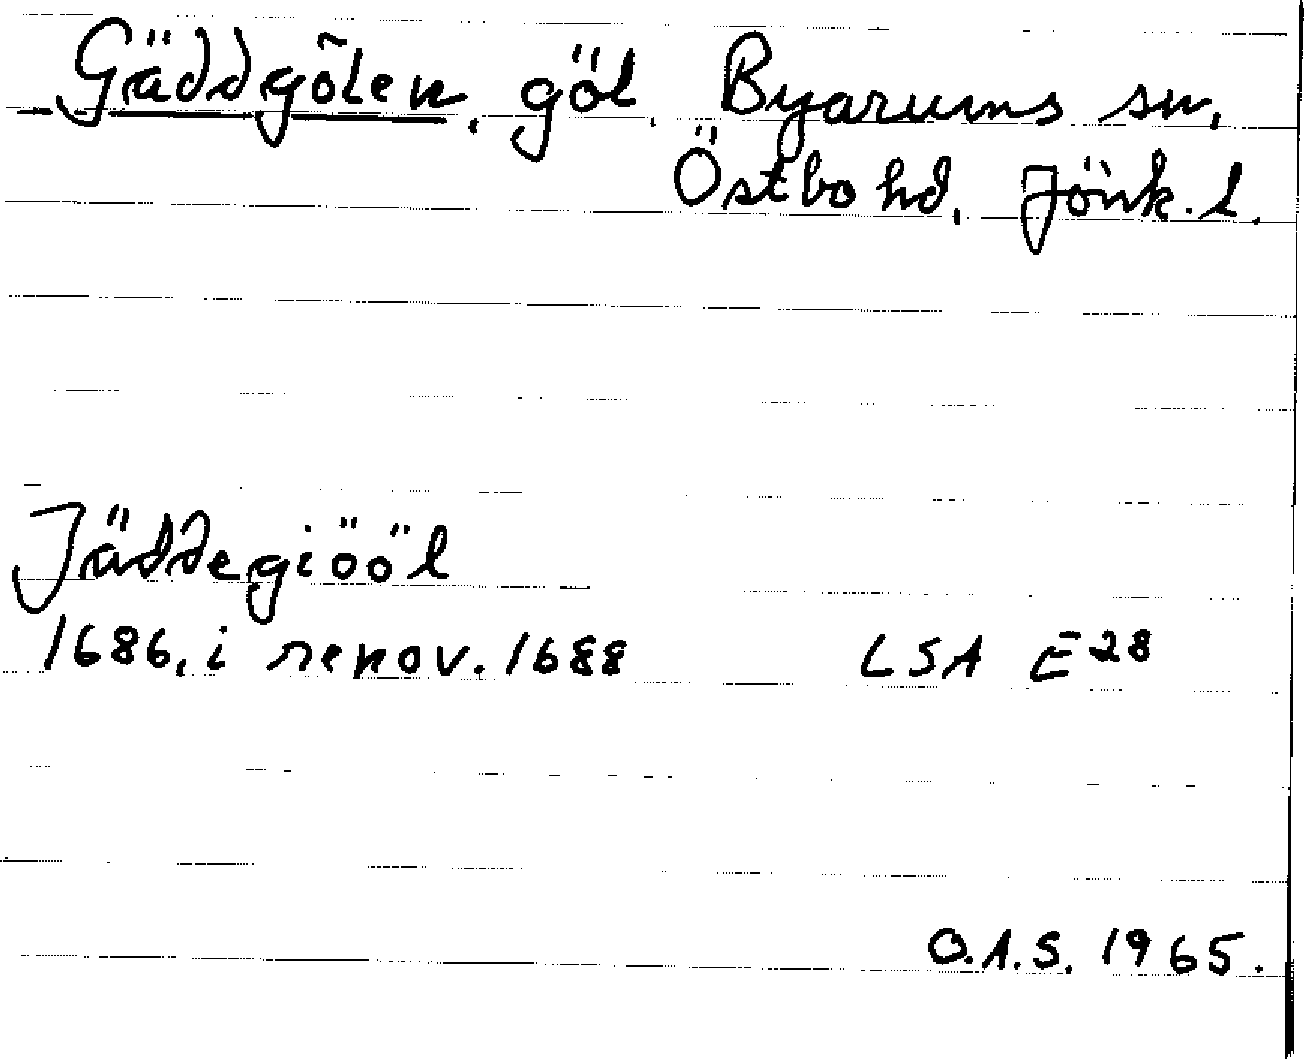 Gäddgölen, göl. Byarums sn,
Östbo hd, Jönk. l.
Jäddegiööl
1686, i renov. 1688 LSA E28
O.A.S. 1965.